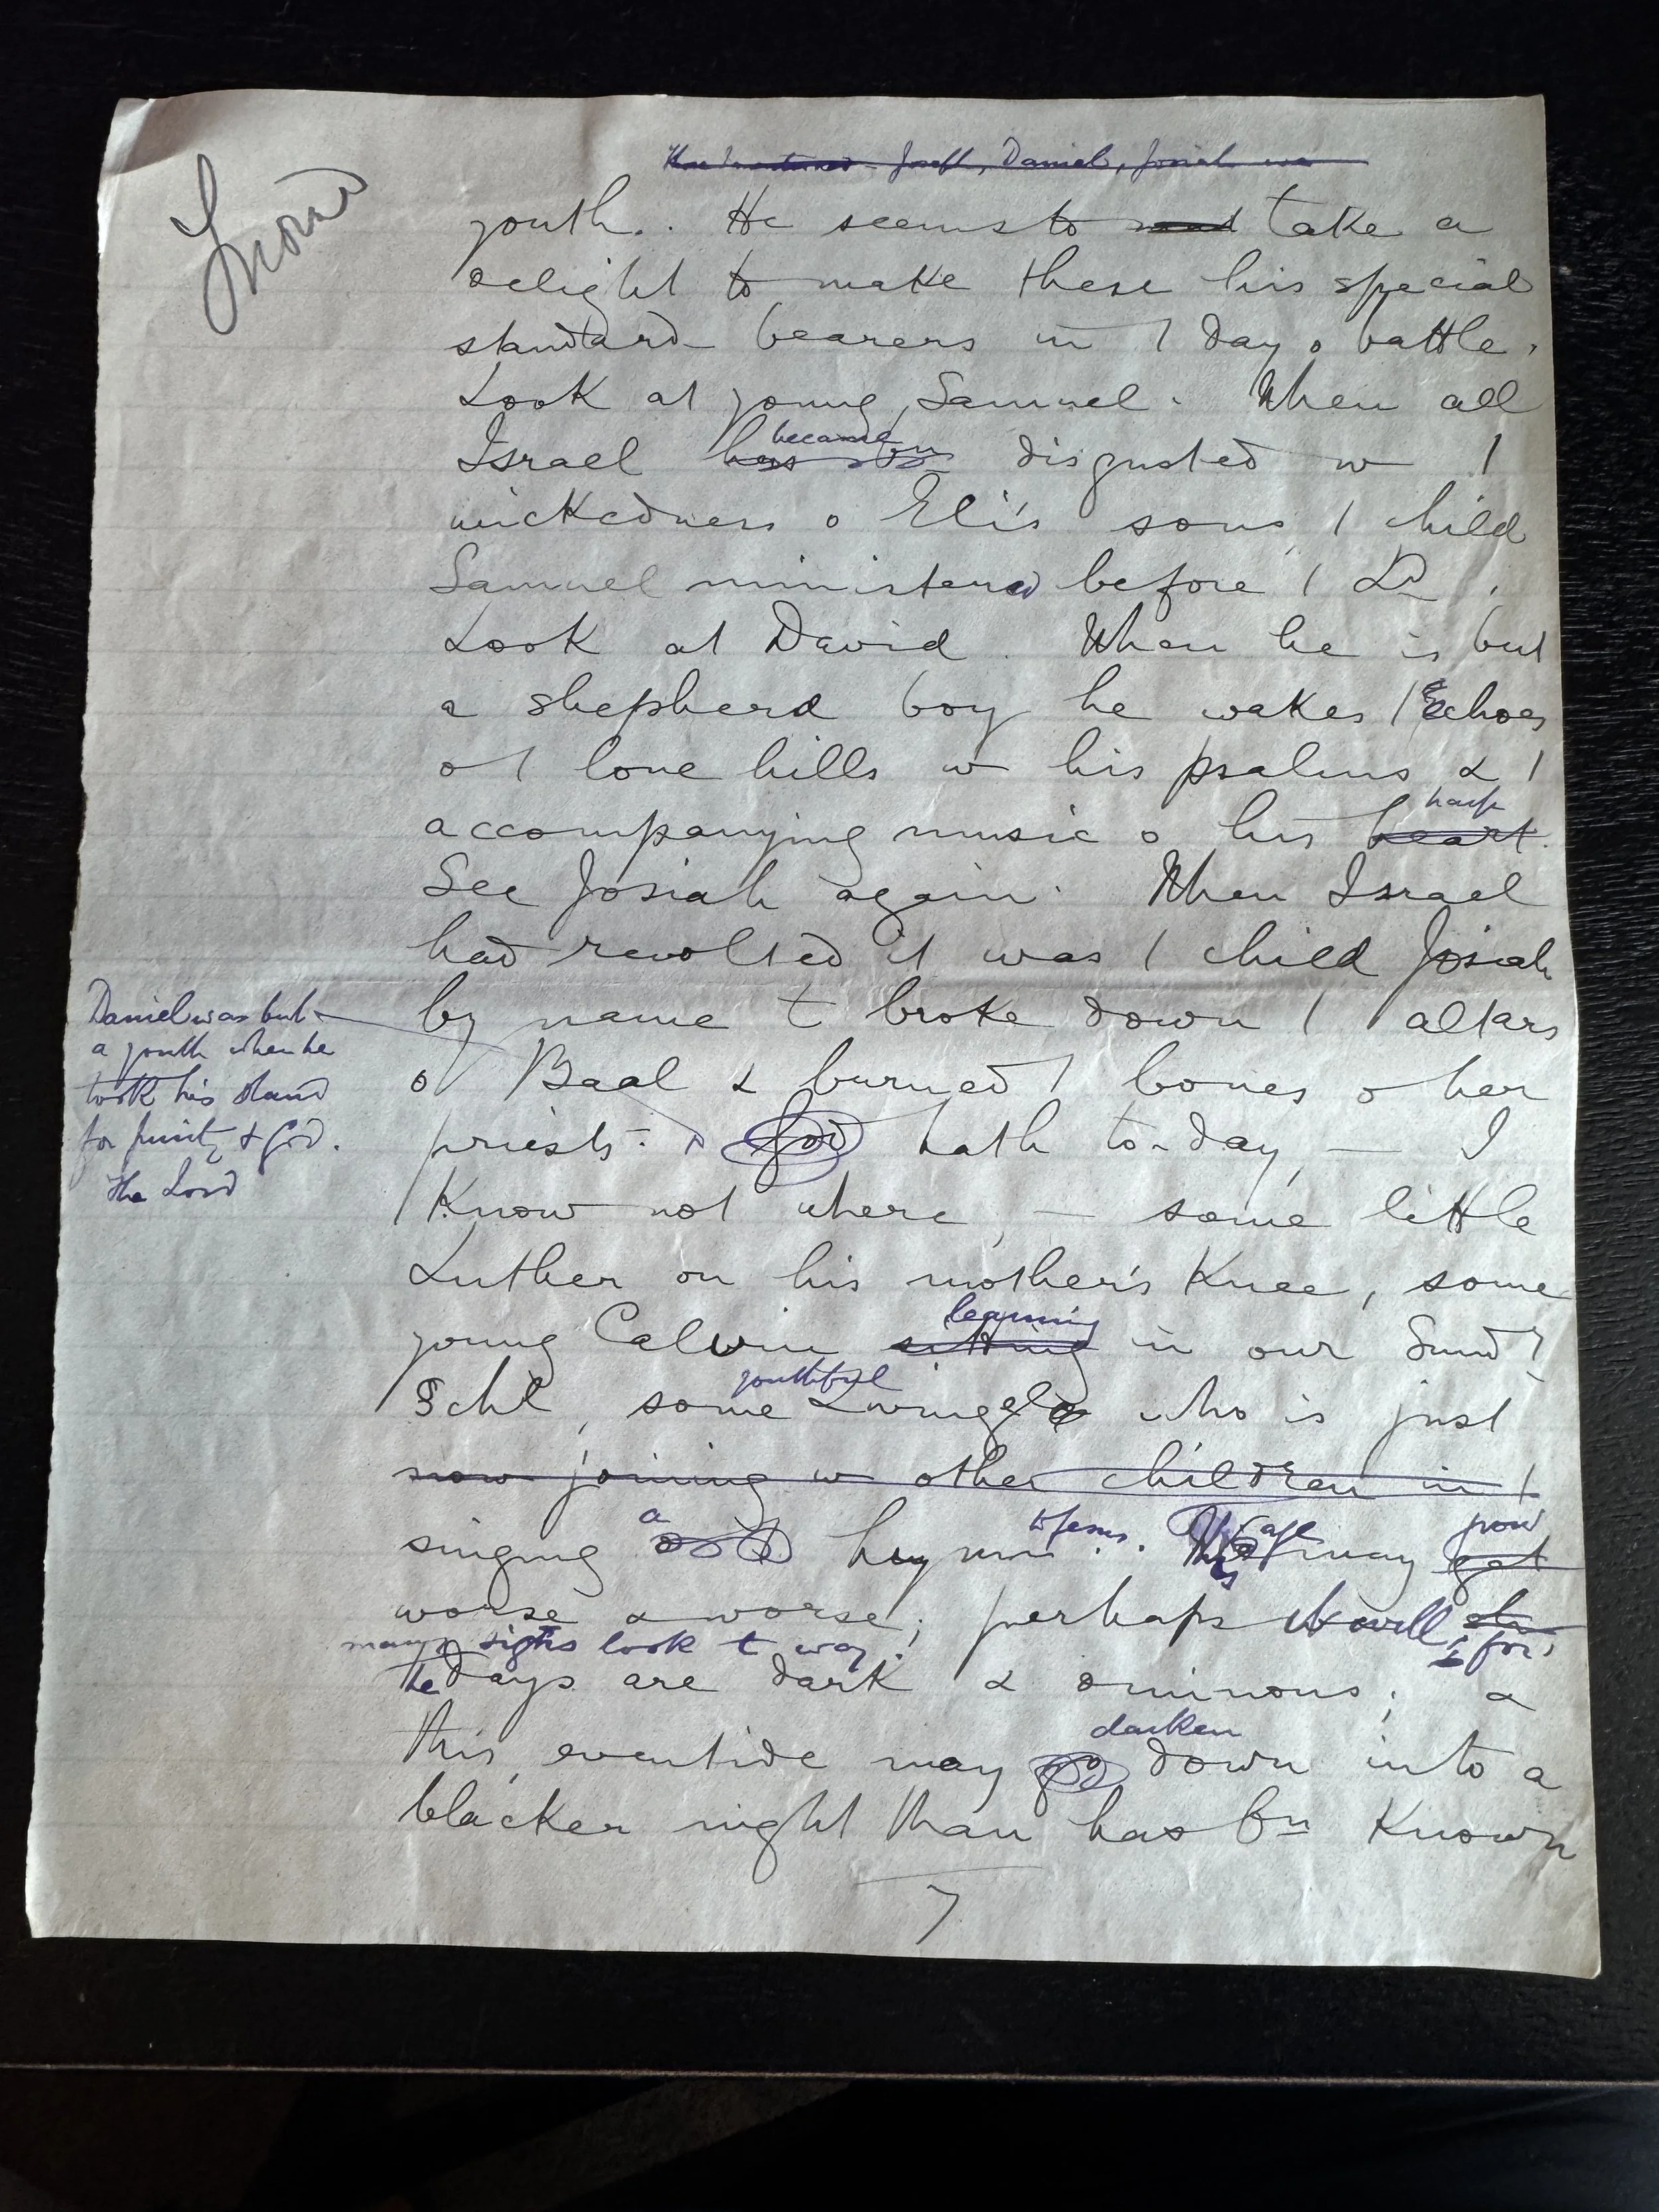 Joseph, Daniel, Josiah was
youth. He seems to take a
delight to make these his special
standard bearers in / day o battle.
Look at young Samuel. When all
became
Israel has bn disgusted w /
wickedness o Eli's sons, / child
Samuel ministered before / Ld.
Look at David. When he is but
a shepherd boy he wakes / Echoes
o / lone hills w his psalms & /
harp
accompanying music o his heart.
See Josiah again. When Israel
had revolted it was / child Josiah
by name t broke down / altars
o Baal & burned / bones o her
priests. God hath to-day, — I
Know not where, — some little
Luther on his mother's Knee, some
learning
young Calvin sitting in our Sund
youthful
Schl, some Zwingle who is just
now joining w other children in /
a to Jesus. age grow
singing hymn. This may get
worse & worse; perhaps it will, for
many signs look t way.
he days are dark & ominous; &
darken
this eventide may go down into a
blacker night than has bn Known
7
Daniel was but
a youth when he
took his stand
for purity & God.
The Lord